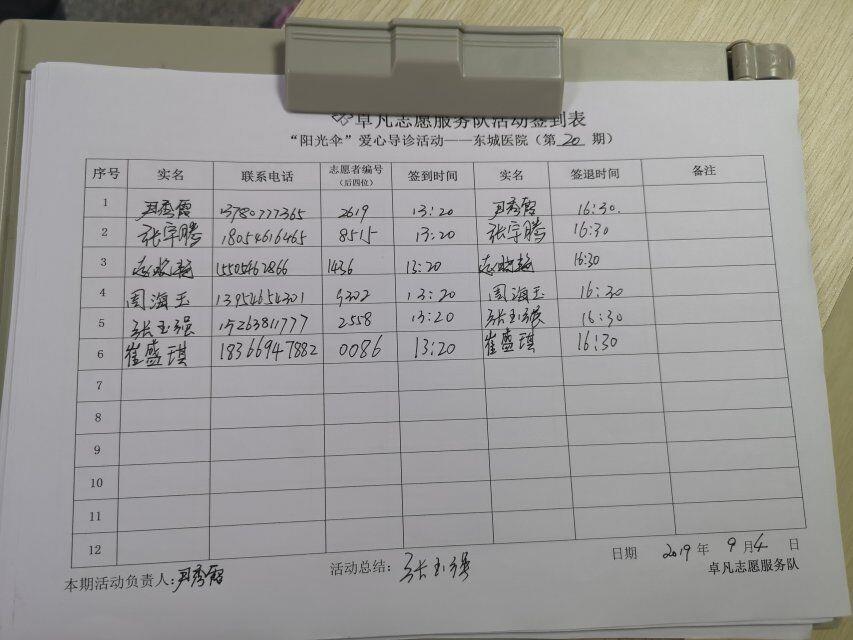 卓凡志愿服务队活动签到表
“阳光伞”爱心导诊活动——东城医院（第 20 期）
序号 实名 联系电话 志愿者编号（后四位） 签到时间 实名 签退时间 备注
1 尹秀霞 13780777365 2619 13:20 尹秀霞 16:30.
2 张宇腾 18054616465 8515 13:20 张宇腾 16:30
3 15505462866 1436 13:20 16:30
4 周海玉 13954654301 9302 13:20 周海玉 16:30
5 张玉强 15263811777 2558 13:20 张玉强 16:30
6 崔盛琪 18366947882 0086 13:20 崔盛琪 16:30
7
8
9
10
11
12
本期活动负责人:尹秀霞 活动总结: 张玉强 日期 2019 年 9 月 4 日
卓凡志愿服务队